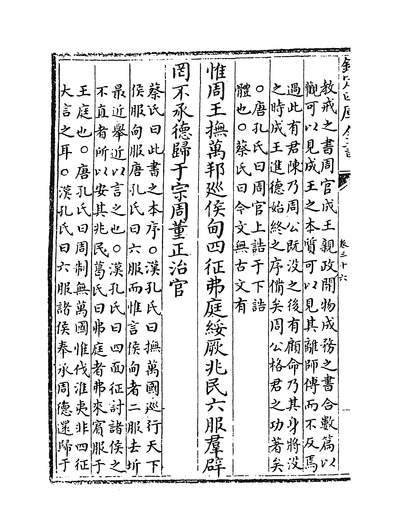 欽定四庫全書
卷三十六
教戒之書周官成王親政開物成務之書合數篇以
觀可以見成王之本質可以見其離師傅而不反焉
過此有君陳乃周公既没之後有顧命乃其身將没
之時成王進德始終之序備矣周公格君之功著矣
○唐孔氏曰周官上誥于下誥
體也○蔡氏曰今文無古文有
惟周王撫萬邦巡侯甸四征弗庭綏厥兆民六服羣辟
罔不承德歸于宗周董正治官
蔡氏曰此書之本序○漢孔氏曰撫萬國巡行天下
侯服甸服唐孔氏曰六服而惟言侯甸者二服去圻
最近舉近以言之也○漢孔氏曰四面征討諸侯之
不直者所以安其兆民葛氏曰弗庭者弗來賓服于
王庭也○唐孔氏曰周制無萬國惟伐淮夷非四征
大言之耳○漢孔氏曰六服諸侯奉承周德還歸于